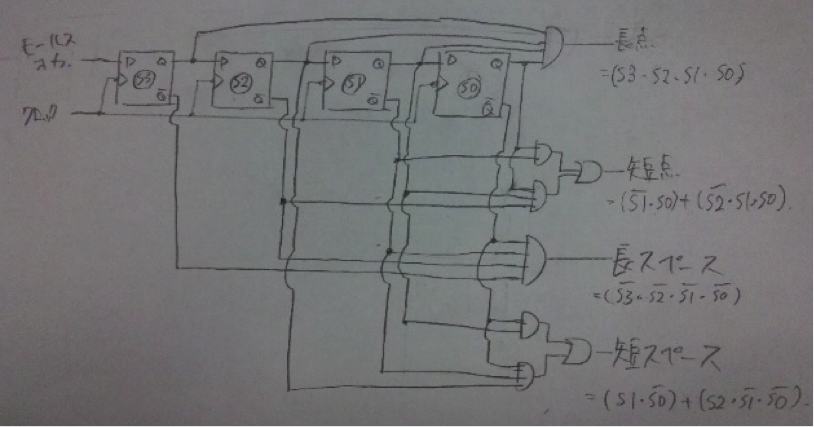 モールス
入力
クロック
D Q
S3
Q̅
D Q
S2
Q̅
D Q
S1
Q̅
D Q
S0
Q̅
長点
=(S3・S2・S1・S0)
短点
=(S̅1̅・S0)+(S̅2̅・S1・S0).
長スペース
=(S̅3̅・S̅2̅・S̅1̅・S̅0̅)
短スペース
=(S1・S̅0̅)+(S2・S̅1̅・S̅0̅).